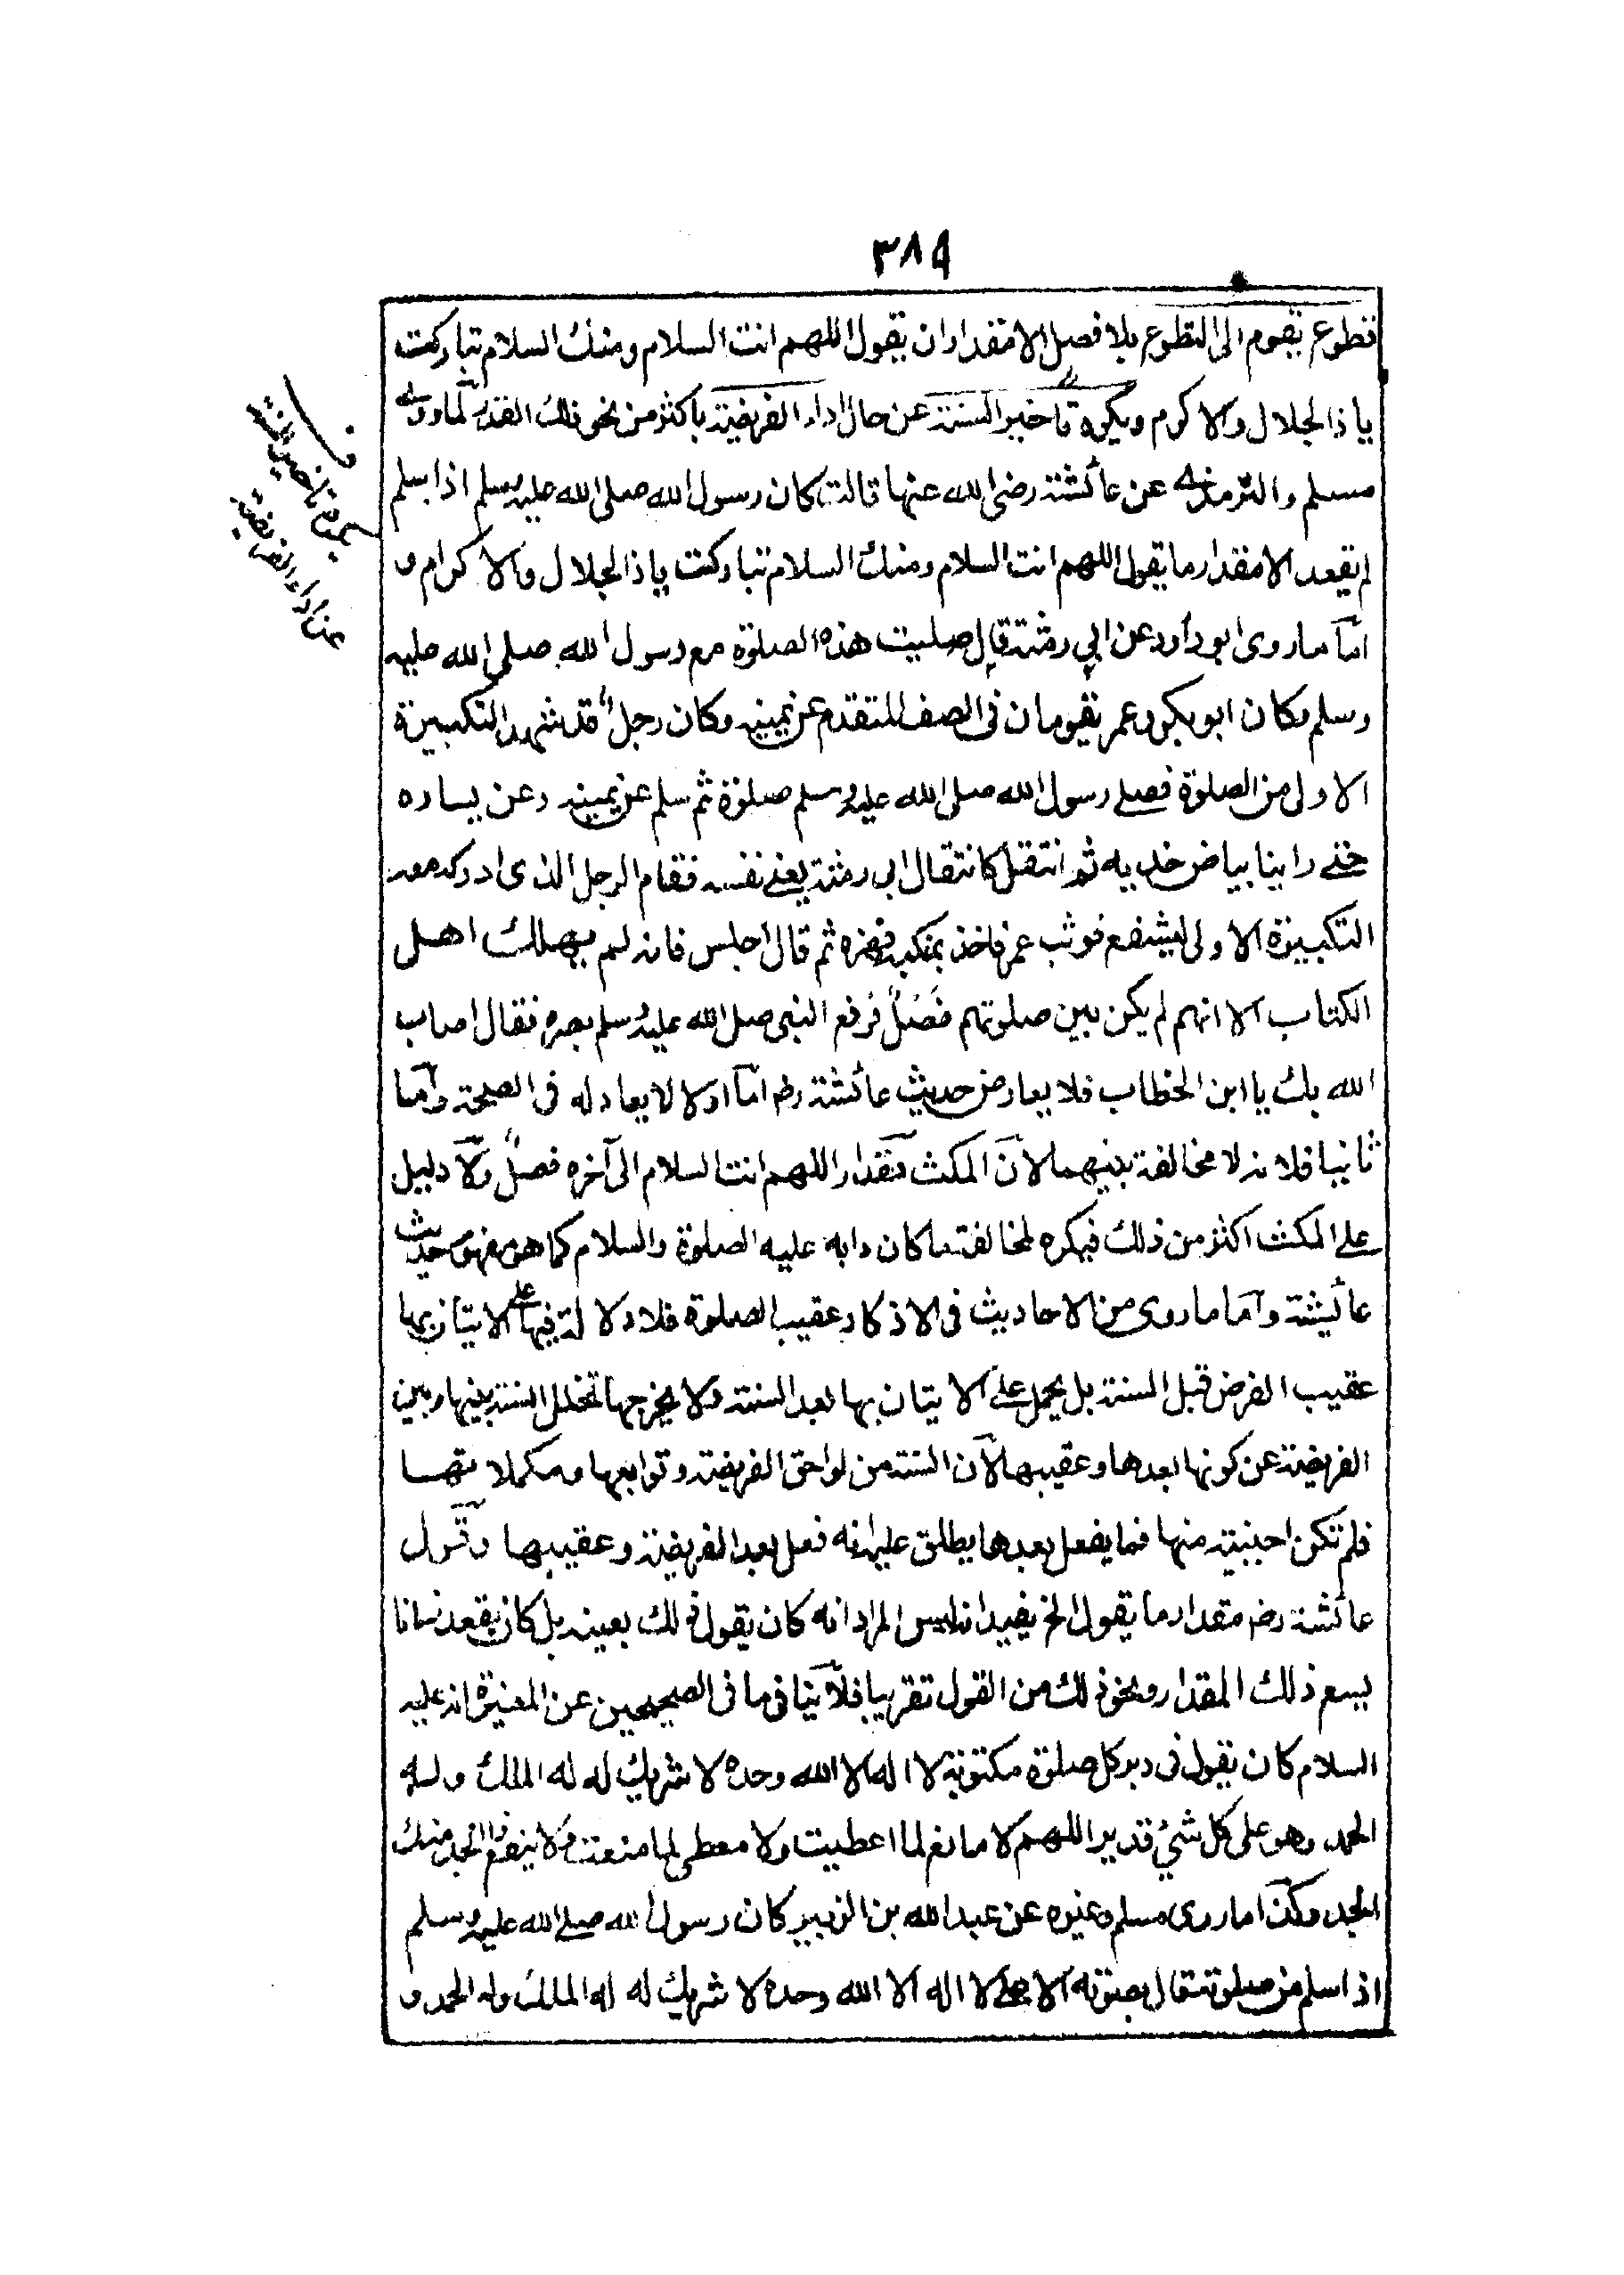 ٣٨٩
فتطوع يقوم الى التطوع بلا فصل الا مقدار ان يقول اللهم انت السلام ومنك السلام تباركت
يا ذا الجلال والاكرام ويكره تاخير السنة عن حال اداء الفريضة باكثر من نحو ذلك القدر لما روى
مسلم والترمذى عن عائشة رضى الله عنها قالت كان رسول الله صلى الله عليه وسلم اذا سلم
لم يقعد الا مقدار ما يقول اللهم انت السلام ومنك السلام تباركت يا ذا الجلال والاكرام و
اما ما روى ابو داود عن ابي رمثة قال صليت هذه الصلوة مع رسول الله صلى الله عليه
وسلم وكان ابو بكر وعمر يقومان فى الصف المتقدم عن يمينه وكان رجل قد شهد التكبيرة
الاولى من الصلوة فصلى رسول الله صلى الله عليه وسلم صلوة ثم سلم عن يمينه وعن يساره
حتى راينا بياض خديه ثم انتقل كانتقال ابى رمثة يعنى نفسه فقام الرجل الذى ادرك معه
التكبيرة الاولى ليشفع فوثب عمر فاخذ بمنكبه فهزه ثم قال اجلس فانه لم يهلك اهل
الكتاب الا انهم لم يكن بين صلوتهم فصل فرفع النبى صلى الله عليه وسلم بصره فقال اصاب
الله بك يا ابن الخطاب فلا يعارض حديث عائشة رضـ اما اولا لا يعادله فى الصحة واما
ثانيا فلانه لا مخالفة بينهما لان المكث مقدار اللهم انت السلام الى آخره فصل ولا دليل
على المكث اكثر من ذلك فيكره لمخالفته ما كان دابه عليه الصلوة والسلام كما هو مفهوم حديث
عائشة واما ما روى من الاحاديث فى الاذكار عقيب الصلوة فلا دلالة فيها على الاتيان بها
عقيب الفرض قبل السنة بل يحمل على الاتيان بها بعد السنة ولا يخرجها تخلل السنة بينها وبين
الفريضة عن كونها بعدها وعقيبها لان السنة من لواحق الفريضة وتوابعها ومكملاتها
فلم تكن اجنبية منها فما يفعل بعدها يطلق عليه انه فعل بعد الفريضة وعقيبها وقول
عائشة رضـ مقدار ما يقول الخ يفيد انه ليس المراد انه كان يقول ذلك بعينه بل كان يقعد زمانا
يسع ذلك المقدار ونحو ذلك من القول تقريبا فلا ينافى ما فى الصحيحين عن المغيرة انه عليه
السلام كان يقول فى دبر كل صلوة مكتوبة لا اله الا الله وحده لا شريك له له الملك وله
الحمد وهو على كل شئ قدير اللهم لا مانع لما اعطيت ولا معطى لما منعت ولا ينفع ذا الجد منك
الجد وكذا ما روى مسلم وغيره عن عبد الله بن الزبير كان رسول الله صلى الله عليه وسلم
اذا سلم من صلوته قال بصوته الاعلى لا اله الا الله وحده لا شريك له له الملك وله الحمد و
يكره تاخير السنة
عن اداء الفريضة